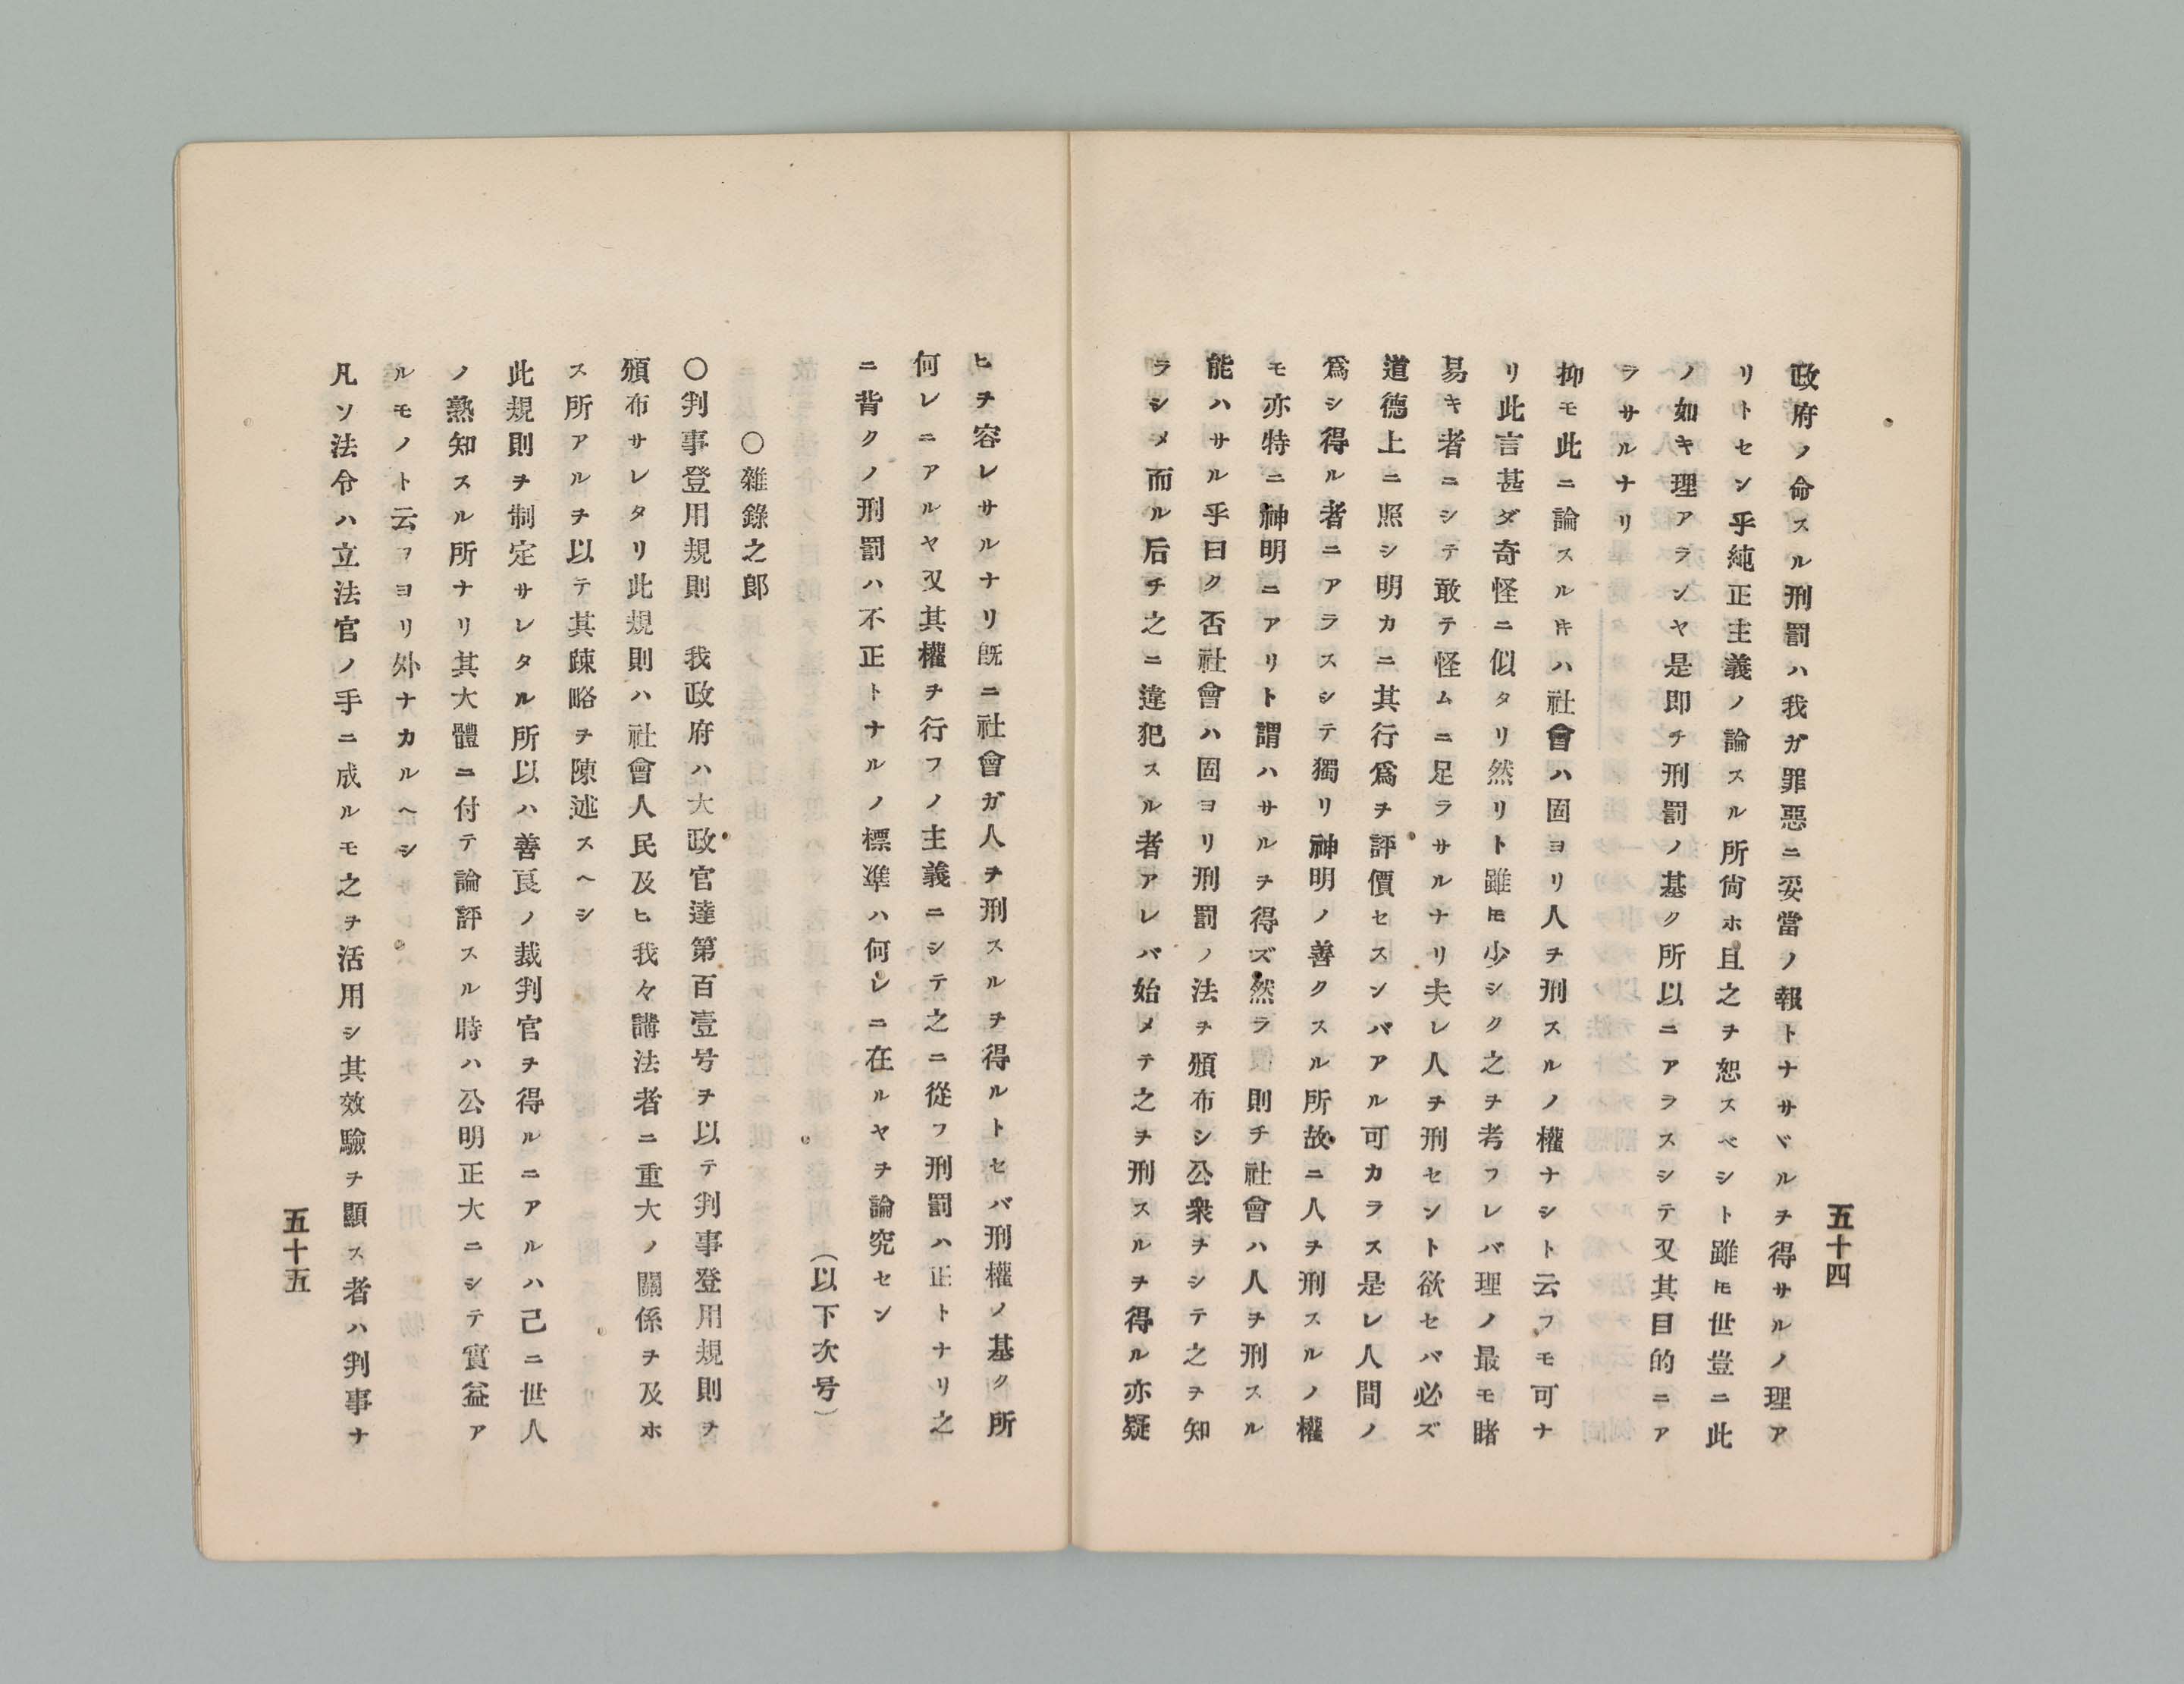 五十四
政府ノ命スル刑罰ハ我ガ罪惡ニ妥當ノ報トナサヾルヲ得サルノ理ア
リトセン乎純正主義ノ論スル所尙ホ且之ヲ恕スベシト雖𪜈世豈ニ此
ノ如キ理アランヤ是即チ刑罰ノ基ク所以ニアラスシテ又其目的ニア
ラサルナリ
抑モ此ニ論スル𬼀ハ社會ハ固ヨリ人ヲ刑スルノ權ナシト云フモ可ナ
リ此言甚ダ奇怪ニ似タリ然リト雖𪜈少シク之ヲ考フレバ理ノ最モ睹
易キ者ニシテ敢テ怪ムニ足ラサルナリ夫レ人ヲ刑セント欲セバ必ズ
道德上ニ照シ明カニ其行爲ヲ評價セスンバアル可カラス是レ人間ノ
爲シ得ル者ニアラスシテ獨リ神明ノ善クスル所故ニ人ヲ刑スルノ權
モ亦特ニ神明ニアリト謂ハサルヲ得ズ然ラ則チ社會ハ人ヲ刑スル
能ハサル乎曰ク否社會ハ固ヨリ刑罰ノ法ヲ頒布シ公衆ヲシテ之ヲ知
ラシメ而ル后チ之ニ違犯スル者アレバ始メテ之ヲ刑スルヲ得ル亦疑
ヒヲ容レサルナリ旣ニ社會ガ人ヲ刑スルヲ得ルトセバ刑權ノ基ク所
何レニアルヤ又其權ヲ行フノ主義ニシテ之ニ從フ刑罰ハ正トナリ之
ニ背クノ刑罰ハ不正トナルノ標準ハ何レニ在ルヤヲ論究セン
(以下次号)
○雜錄之郞
○判事登用規則 我政府ハ大政官達第百壹号ヲ以テ判事登用規則ヲ
頒布サレタリ此規則ハ社會人民及ヒ我々講法者ニ重大ノ關係ヲ及ホ
ス所アルヲ以テ其踈略ヲ陳述スヘシ
此規則ヲ制定サレタル所以ハ善良ノ裁判官ヲ得ルニアルハ己ニ世人
ノ熟知スル所ナリ其大體ニ付テ論評スル時ハ公明正大ニシテ實益ア
ルモノト云フヨリ外ナカルヘシ
凡ソ法令ハ立法官ノ手ニ成ルモ之ヲ活用シ其效驗ヲ顯ス者ハ判事ナ
五十五